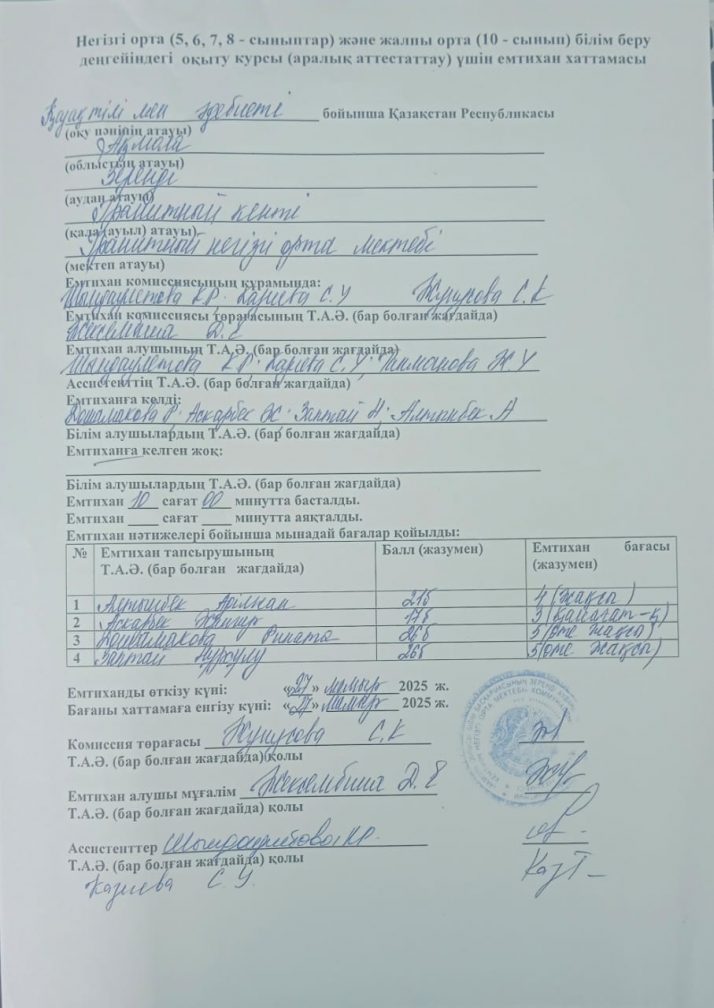 Негізгі орта (5, 6, 7, 8 - сыныптар) және жалпы орта (10 - сынып) білім беру
деңгейіндегі оқыту курсы (аралық аттестаттау) үшін емтихан хаттамасы
Қазақ тілі мен әдебиеті бойынша Қазақстан Республикасы
(оқу пәнінің атауы)
Ақмола
(облыстың атауы)
Зеренді
(аудан атауы)
Гранитный кенті
(қала(ауыл) атауы)
Гранитный негізгі орта мектебі
(мектеп атауы)
Емтихан комиссиясының құрамында:
К.Р. Казиева С.У Жунусова С.К
Емтихан комиссиясы төрағасының Т.А.Ә. (бар болған жағдайда)
Д.Е
Емтихан алушының Т.А.Ә. (бар болған жағдайда)
К.Р. Казиева С.У. Ж.У
Ассистенттің Т.А.Ә. (бар болған жағдайда)
Емтиханға келді:
Р. Аскарбек Ж. Заптай Н. Алтынбек А
Білім алушылардың Т.А.Ә. (бар болған жағдайда)
Емтиханға келген жоқ:
Білім алушылардың Т.А.Ә. (бар болған жағдайда)
Емтихан 10 сағат 00 минутта басталды.
Емтихан ____ сағат ____ минутта аяқталды.
Емтихан нәтижелері бойынша мынадай бағалар қойылды:
№ Емтихан тапсырушының Т.А.Ә. (бар болған жағдайда) Балл (жазумен) Емтихан бағасы (жазумен)
1 Алтынбек 21б 4 (жақсы)
2 Аскарбек 17б 3 (қанағат-қ)
3 Рината 26б 5 (өте жақсы)
4 Заптай Нұрсұлу 26б 5 (өте жақсы)
Емтиханды өткізу күні: «27» мамыр 2025 ж.
Бағаны хаттамаға енгізу күні: «27» мамыр 2025 ж.
Комиссия төрағасы Жунусова С.К
Т.А.Ә. (бар болған жағдайда)қолы
Емтихан алушы мұғалім Д.Е
Т.А.Ә. (бар болған жағдайда) қолы
Ассистенттер К.Р.
Т.А.Ә. (бар болған жағдайда) қолы
Казиева С.У.